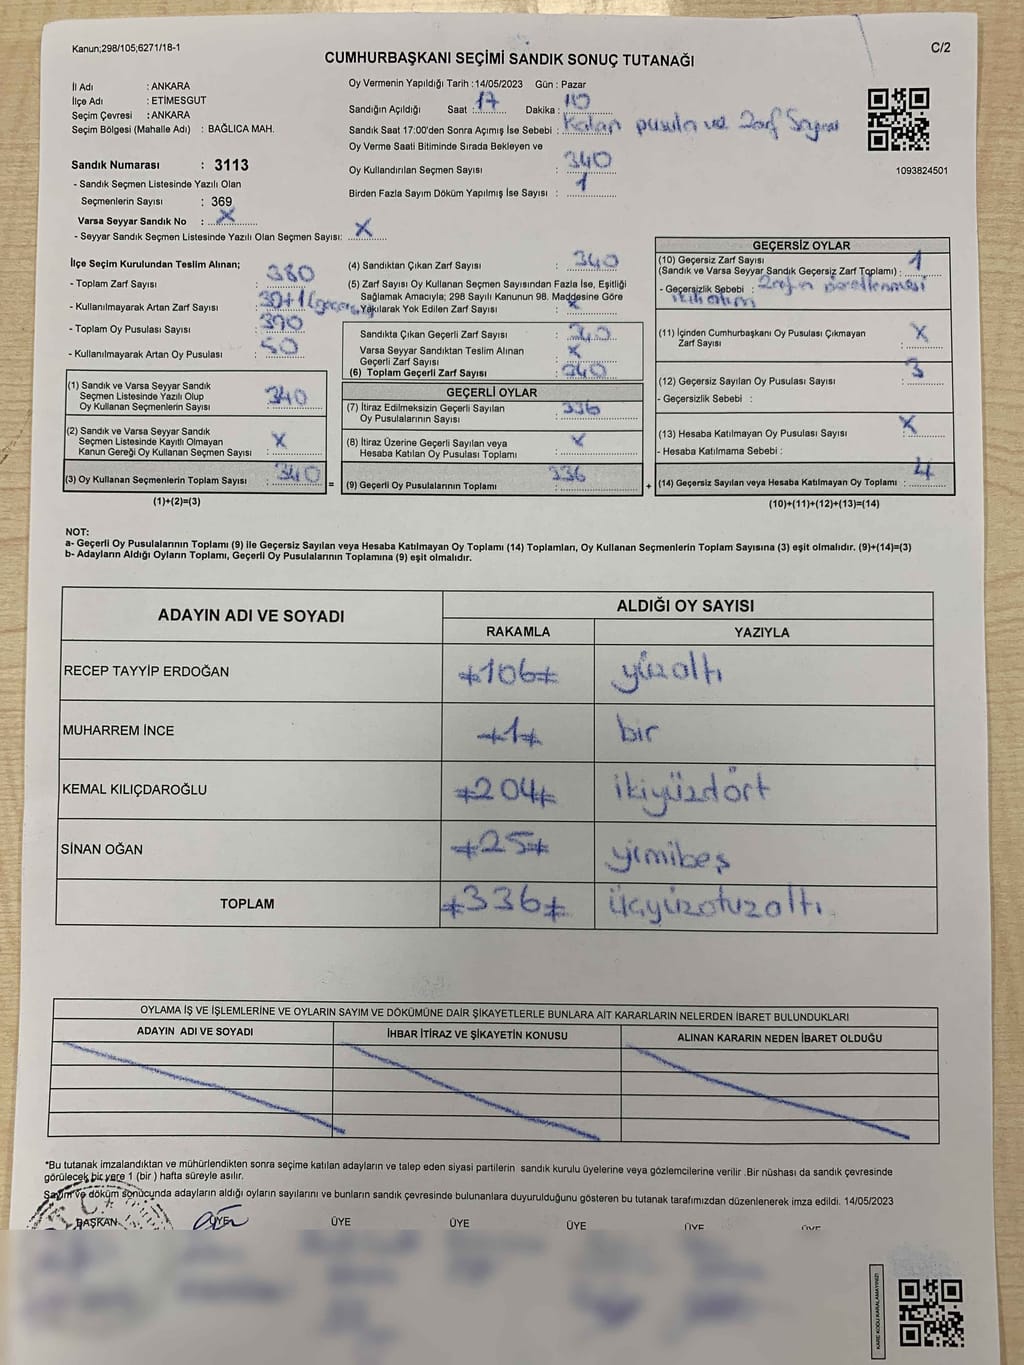 Kanun;298/105;6271/18-1
C/2
CUMHURBAŞKANI SEÇİMİ SANDIK SONUÇ TUTANAĞI
İl Adı : ANKARA
İlçe Adı : ETİMESGUT
Seçim Çevresi : ANKARA
Seçim Bölgesi (Mahalle Adı) : BAĞLICA MAH.
Sandık Numarası : 3113
- Sandık Seçmen Listesinde Yazılı Olan
Seçmenlerin Sayısı : 369
Varsa Seyyar Sandık No : X
- Seyyar Sandık Seçmen Listesinde Yazılı Olan Seçmen Sayısı: X
Oy Vermenin Yapıldığı Tarih :14/05/2023 Gün : Pazar
Sandığın Açıldığı Saat : 17 Dakika :
Sandık Saat 17:00'den Sonra Açımış İse Sebebi : Kalan pusula ve Zarf Sayımı
Oy Verme Saati Bitiminde Sırada Bekleyen ve
Oy Kullandırılan Seçmen Sayısı : 340
Birden Fazla Sayım Döküm Yapılmış İse Sayısı : 1
1093824501
İlçe Seçim Kurulundan Teslim Alınan;
- Toplam Zarf Sayısı : 380
- Kullanılmayarak Artan Zarf Sayısı : 30+1
- Toplam Oy Pusulası Sayısı : 390
- Kullanılmayarak Artan Oy Pusulası : 50
(1) Sandık ve Varsa Seyyar Sandık
Seçmen Listesinde Yazılı Olup
Oy Kullanan Seçmenlerin Sayısı : 340
(2) Sandık ve Varsa Seyyar Sandık
Seçmen Listesinde Kayıtlı Olmayan
Kanun Gereği Oy Kullanan Seçmen Sayısı : X
(3) Oy Kullanan Seçmenlerin Toplam Sayısı : 340
(1)+(2)=(3)
(4) Sandıktan Çıkan Zarf Sayısı : 340
(5) Zarf Sayısı Oy Kullanan Seçmen Sayısından Fazla İse, Eşitliği
Sağlamak Amacıyla; 298 Sayılı Kanunun 98. Maddesine Göre
Yakılarak Yok Edilen Zarf Sayısı : X
Sandıkta Çıkan Geçerli Zarf Sayısı : 340
Varsa Seyyar Sandıktan Teslim Alınan
Geçerli Zarf Sayısı : X
(6) Toplam Geçerli Zarf Sayısı : 340
GEÇERLİ OYLAR
(7) İtiraz Edilmeksizin Geçerli Sayılan
Oy Pusulalarının Sayısı : 336
(8) İtiraz Üzerine Geçerli Sayılan veya
Hesaba Katılan Oy Pusulası Toplamı : X
= (9) Geçerli Oy Pusulalarının Toplamı : 336
GEÇERSİZ OYLAR
(10) Geçersiz Zarf Sayısı
(Sandık ve Varsa Seyyar Sandık Geçersiz Zarf Toplamı) : 1
- Geçersizlik Sebebi :
(11) İçinden Cumhurbaşkanı Oy Pusulası Çıkmayan
Zarf Sayısı : X
(12) Geçersiz Sayılan Oy Pusulası Sayısı : 3
- Geçersizlik Sebebi :
(13) Hesaba Katılmayan Oy Pusulası Sayısı : X
- Hesaba Katılmama Sebebi :
+ (14) Geçersiz Sayılan veya Hesaba Katılmayan Oy Toplamı : 4
(10)+(11)+(12)+(13)=(14)
NOT:
a- Geçerli Oy Pusulalarının Toplamı (9) ile Geçersiz Sayılan veya Hesaba Katılmayan Oy Toplamı (14) Toplamları, Oy Kullanan Seçmenlerin Toplam Sayısına (3) eşit olmalıdır. (9)+(14)=(3)
b- Adayların Aldığı Oyların Toplamı, Geçerli Oy Pusulalarının Toplamına (9) eşit olmalıdır.
ADAYIN ADI VE SOYADI ALDIĞI OY SAYISI
RAKAMLA YAZIYLA
RECEP TAYYİP ERDOĞAN 106 yüzaltı
MUHARREM İNCE 1 bir
KEMAL KILIÇDAROĞLU 204 ikiyüzdört
SİNAN OĞAN 25 yirmibeş
TOPLAM 336 üçyüzotuzaltı
OYLAMA İŞ VE İŞLEMLERİNE VE OYLARIN SAYIM VE DÖKÜMÜNE DAİR ŞİKAYETLERLE BUNLARA AİT KARARLARIN NELERDEN İBARET BULUNDUKLARI
ADAYIN ADI VE SOYADI İHBAR İTİRAZ VE ŞİKAYETİN KONUSU ALINAN KARARIN NEDEN İBARET OLDUĞU
*Bu tutanak imzalandıktan ve mühürlendikten sonra seçime katılan adayların ve talep eden siyasi partilerin sandık kurulu üyelerine veya gözlemcilerine verilir .Bir nüshası da sandık çevresinde
görülecek bir yere 1 (bir ) hafta süreyle asılır.
Sayım ve döküm sonucunda adayların aldığı oyların sayılarını ve bunların sandık çevresinde bulunanlara duyurulduğunu gösteren bu tutanak tarafımızdan düzenlenerek imza edildi. 14/05/2023
BAŞKAN ÜYE ÜYE ÜYE ÜYE ÜYE ÜYE
KARE KODU KARALAMAYINIZ!